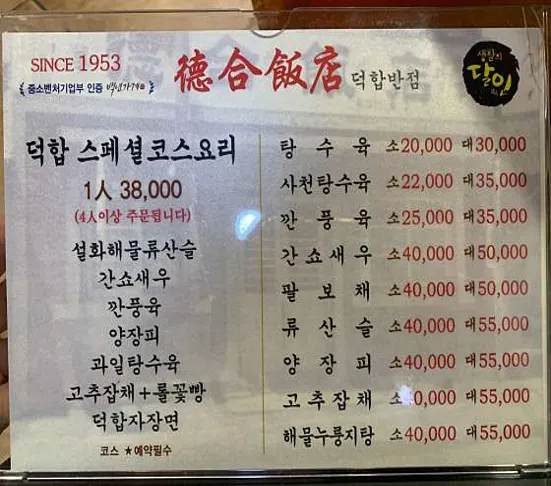 SINCE 1953
중소벤처기업부 인증 백년가게
德合飯店 덕합반점
생활의
달인
덕합 스페셜코스요리
1人 38,000
(4人이상 주문됩니다)
설화해물류산슬
간쇼새우
깐풍육
양장피
과일탕수육
고추잡채+롤꽃빵
덕합자장면
코스 ★예약필수
탕수육 소20,000 대30,000
사천탕수육 소22,000 대35,000
깐풍육 소25,000 대35,000
간쇼새우 소40,000 대50,000
팔보채 소40,000 대50,000
류산슬 소40,000 대55,000
양장피 소40,000 대55,000
고추잡채 소 0,000 대55,000
해물누룽지탕 소40,000 대55,000